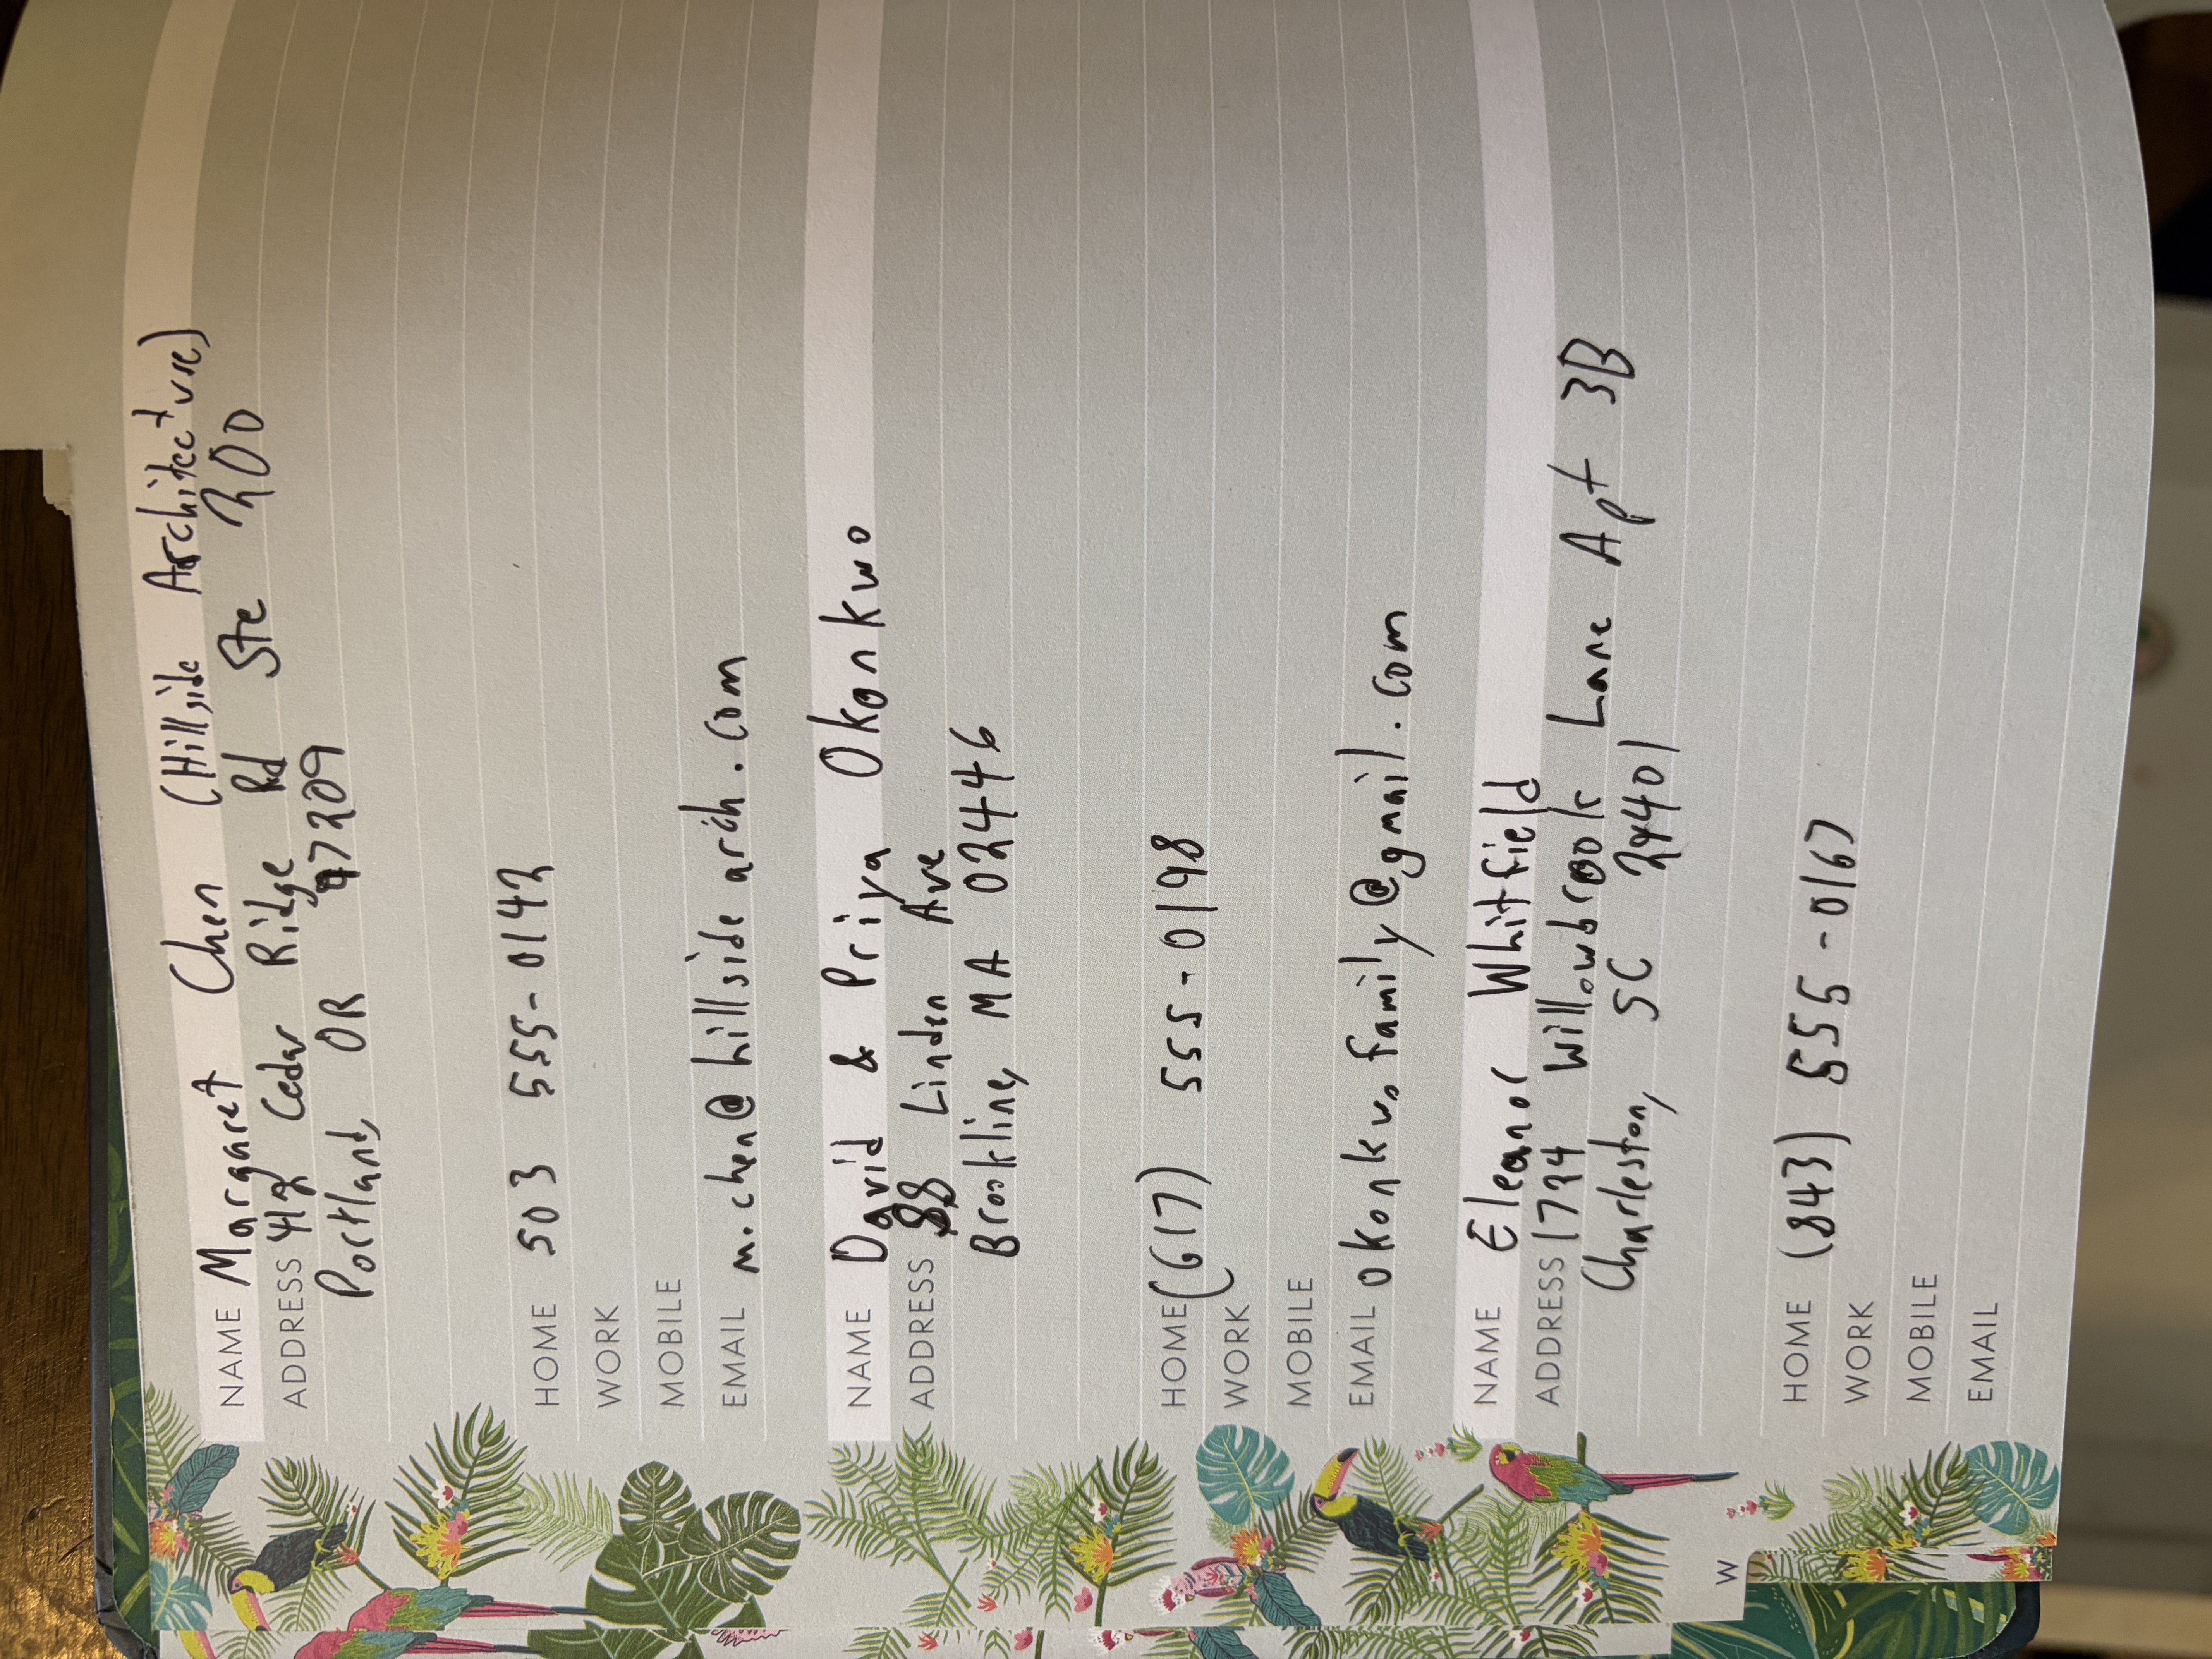 NAME Margaret Chen (Hillside Architecture)
ADDRESS 412 Cedar Ridge Rd Ste 200
Portland, OR 97209
HOME 503 555-0142
WORK
MOBILE
EMAIL m.chen@hillsidearch.com
NAME David & Priya Okonkwo
ADDRESS 88 Linden Ave
Brookline, MA 02446
HOME (617) 555-0198
WORK
MOBILE
EMAIL okonkwofamily@gmail.com
NAME Eleanor Whitfield
ADDRESS 1734 Willowbrook Lane Apt 3B
Charleston, SC 29401
HOME (843) 555-0167
WORK
MOBILE
EMAIL
W